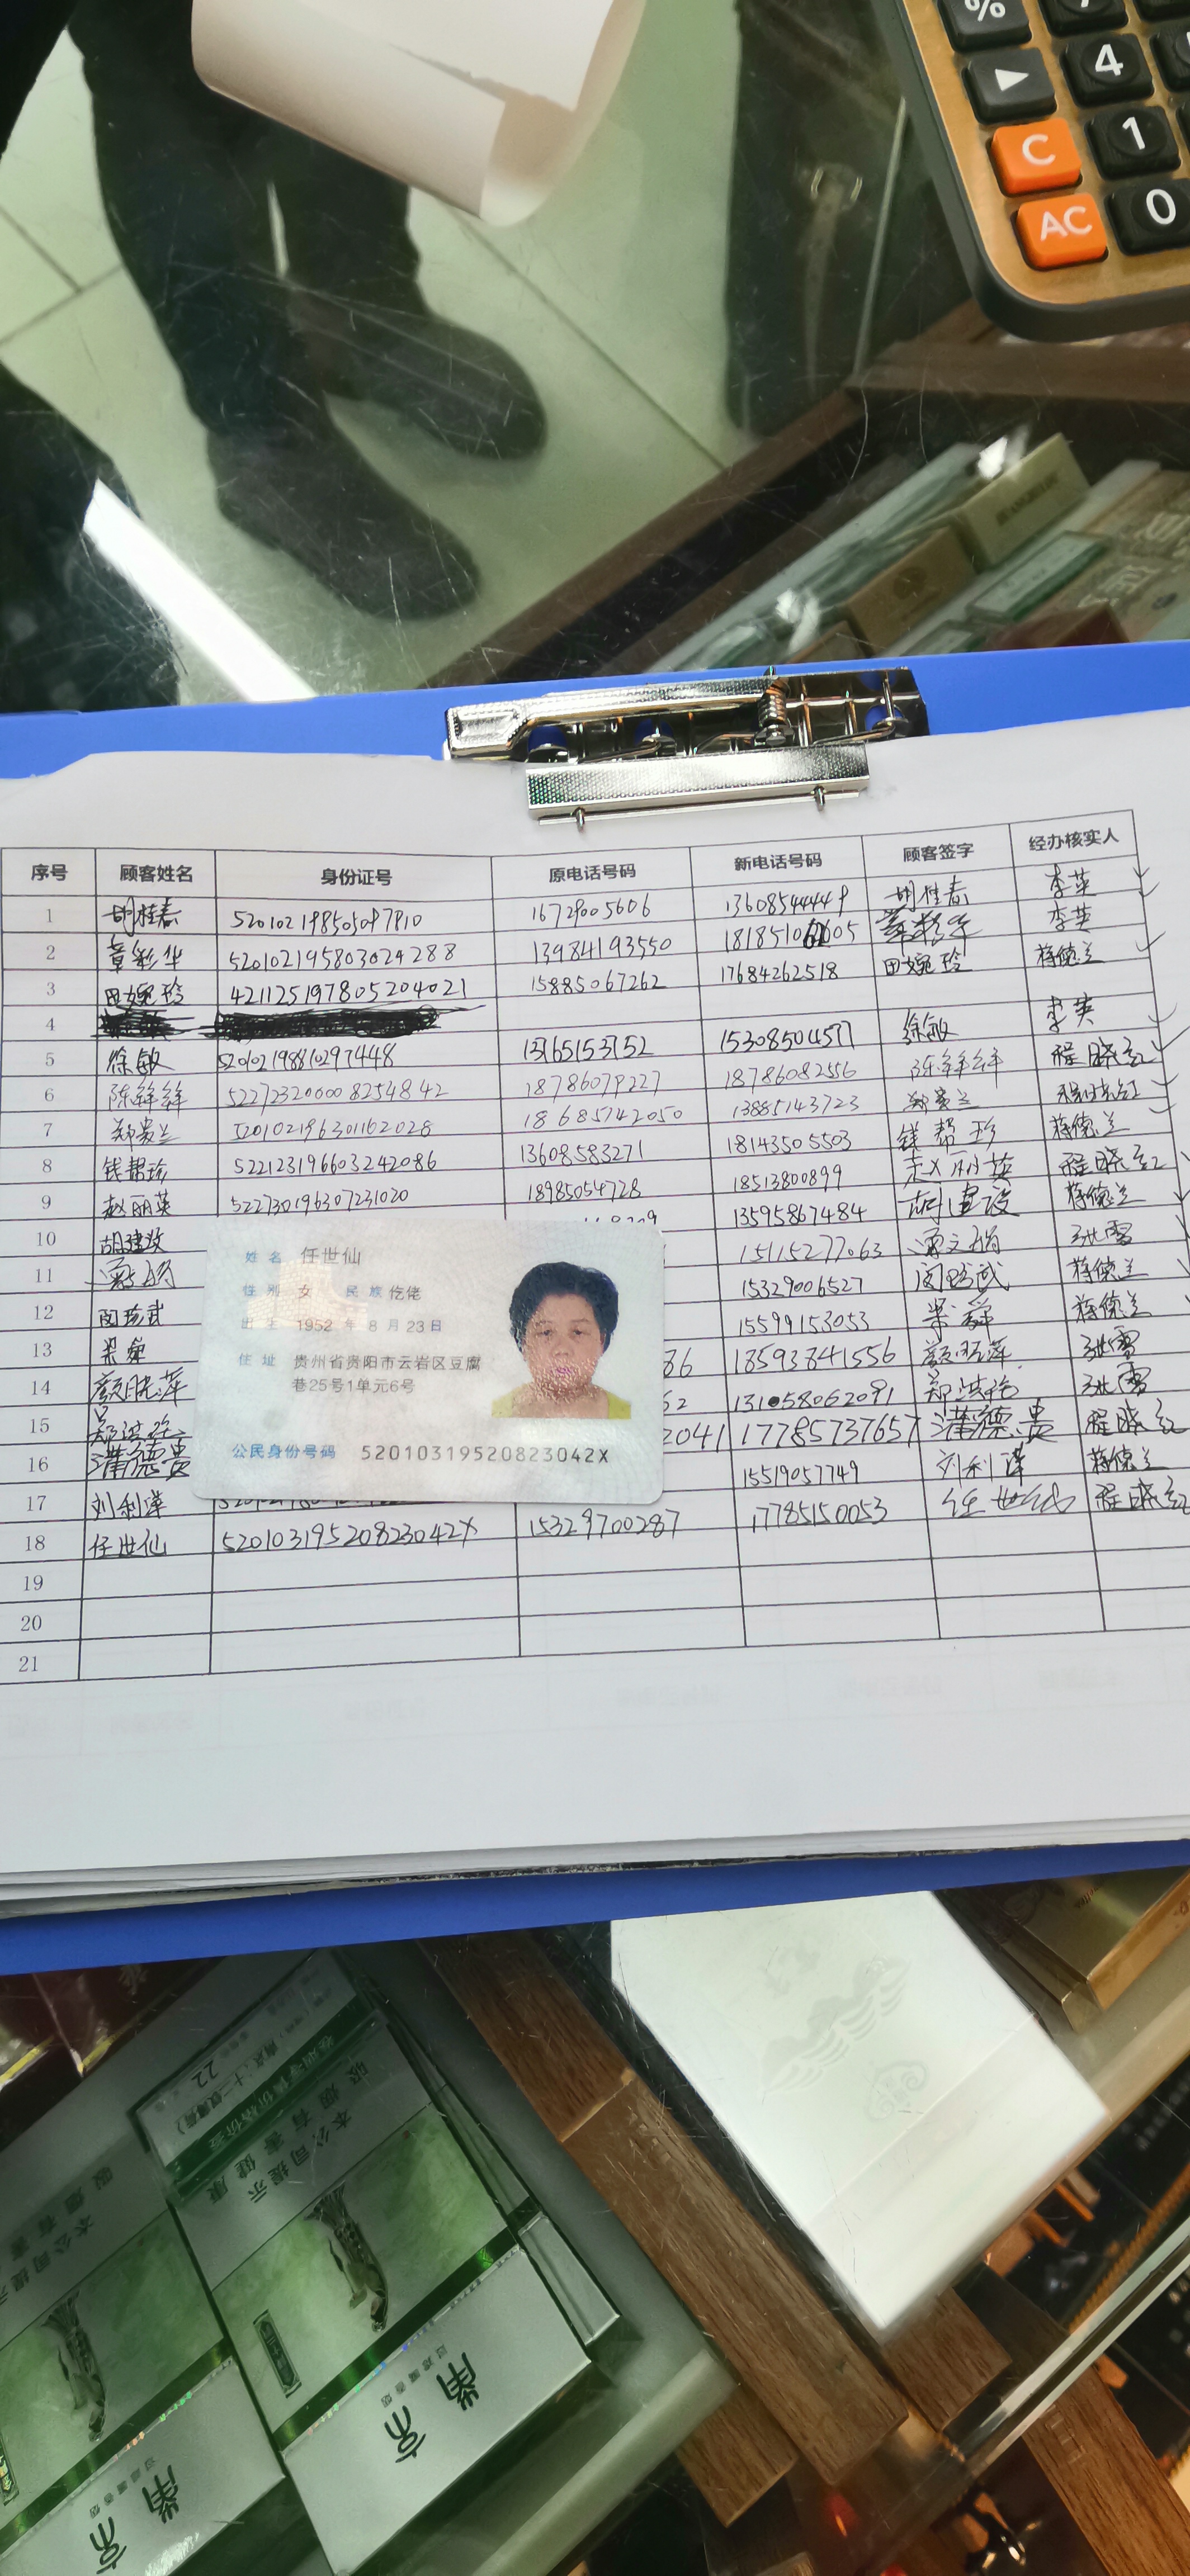 %
7
4
C
1
AC
0
序号 顾客姓名 身份证号 原电话号码 新电话号码 顾客签字 经办核实人
1 胡桂春 16729005606 13608544449 胡桂春 李英
2 章彩华 520102195803024288 13984193550 章彩华 李英
3 田婉玲 421125197805204021 15885067262 17684262518 田婉玲 蒋德兰
4
5 徐敏 520102198810297448 15308504577 徐敏 李英
6 陈 522723200008254842 18786079227 18786082556 陈 程晓红
7 郑贵兰 520102196301162028 18685742050 13885143723 郑贵兰 程晓红
8 钱帮珍 522123196603242086 13608583271 18143505503 钱帮珍 蒋德兰
9 赵丽英 522730196307231020 18985054728 18513800899 赵丽英 程晓红
10 胡建设 13595867484 胡建设 蒋德兰
11 15115277063 张雪
12 闵 武 15329006527 闵 武 蒋德兰
13 梁舜 15599153053 梁舜 蒋德兰
14 颜晓萍 86 18593841556 颜晓萍 张雪
15 郑洪 52 131058062091 郑洪 张雪
16 满德贵 2041 17785737657 满德贵 程晓红
17 刘利萍 15519057749 刘利萍 蒋德兰
18 任世仙 52010319520823042X 15329700287 17785150053 任世仙 程晓红
19
20
21
姓名 任世仙
性别 女 民族 仡佬
出生 1952 年 8 月 23 日
住址 贵州省贵阳市云岩区豆腐
巷25号1单元6号
公民身份号码 52010319520823042X
22
本公司提示
吸烟有害健康
南京
南京